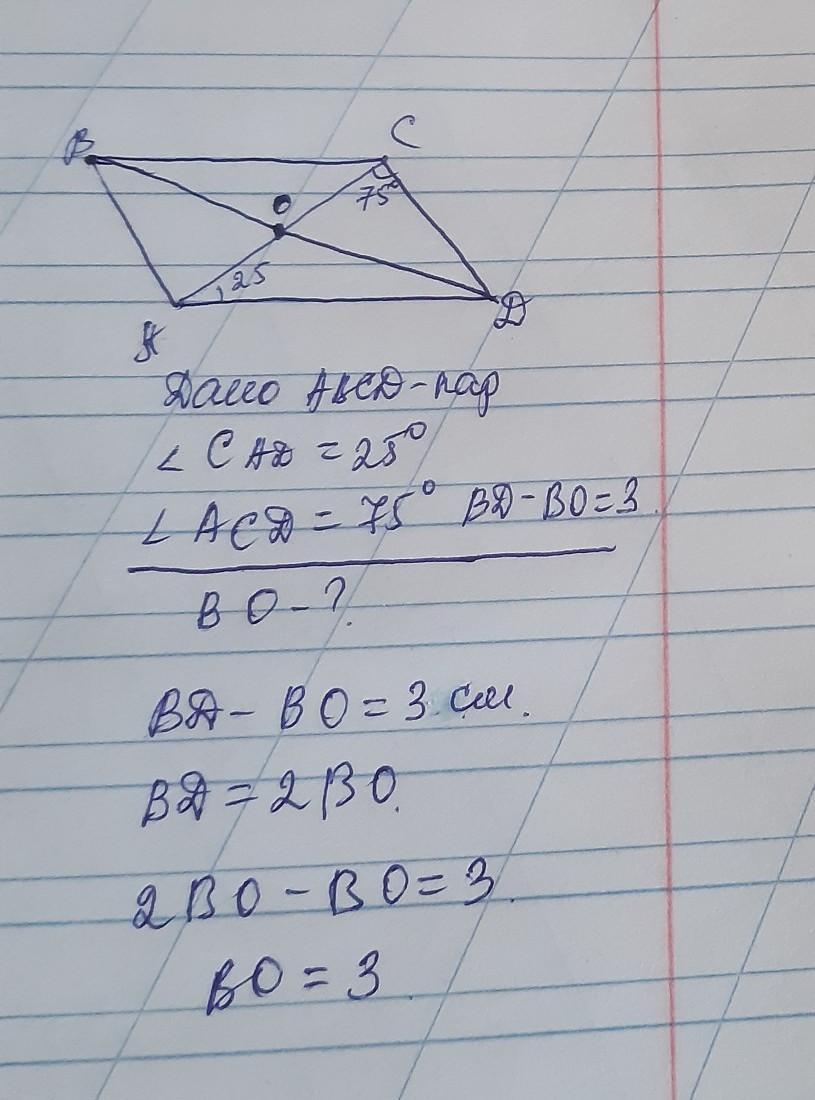 B
C
O
75°
25
A
D
Дано ABCD-пар
∠ CAD = 25°
∠ ACD = 75° BD-BO=3.
BO-?
BD- BO = 3 см.
BD = 2BO.
2BO - BO = 3.
BO = 3.